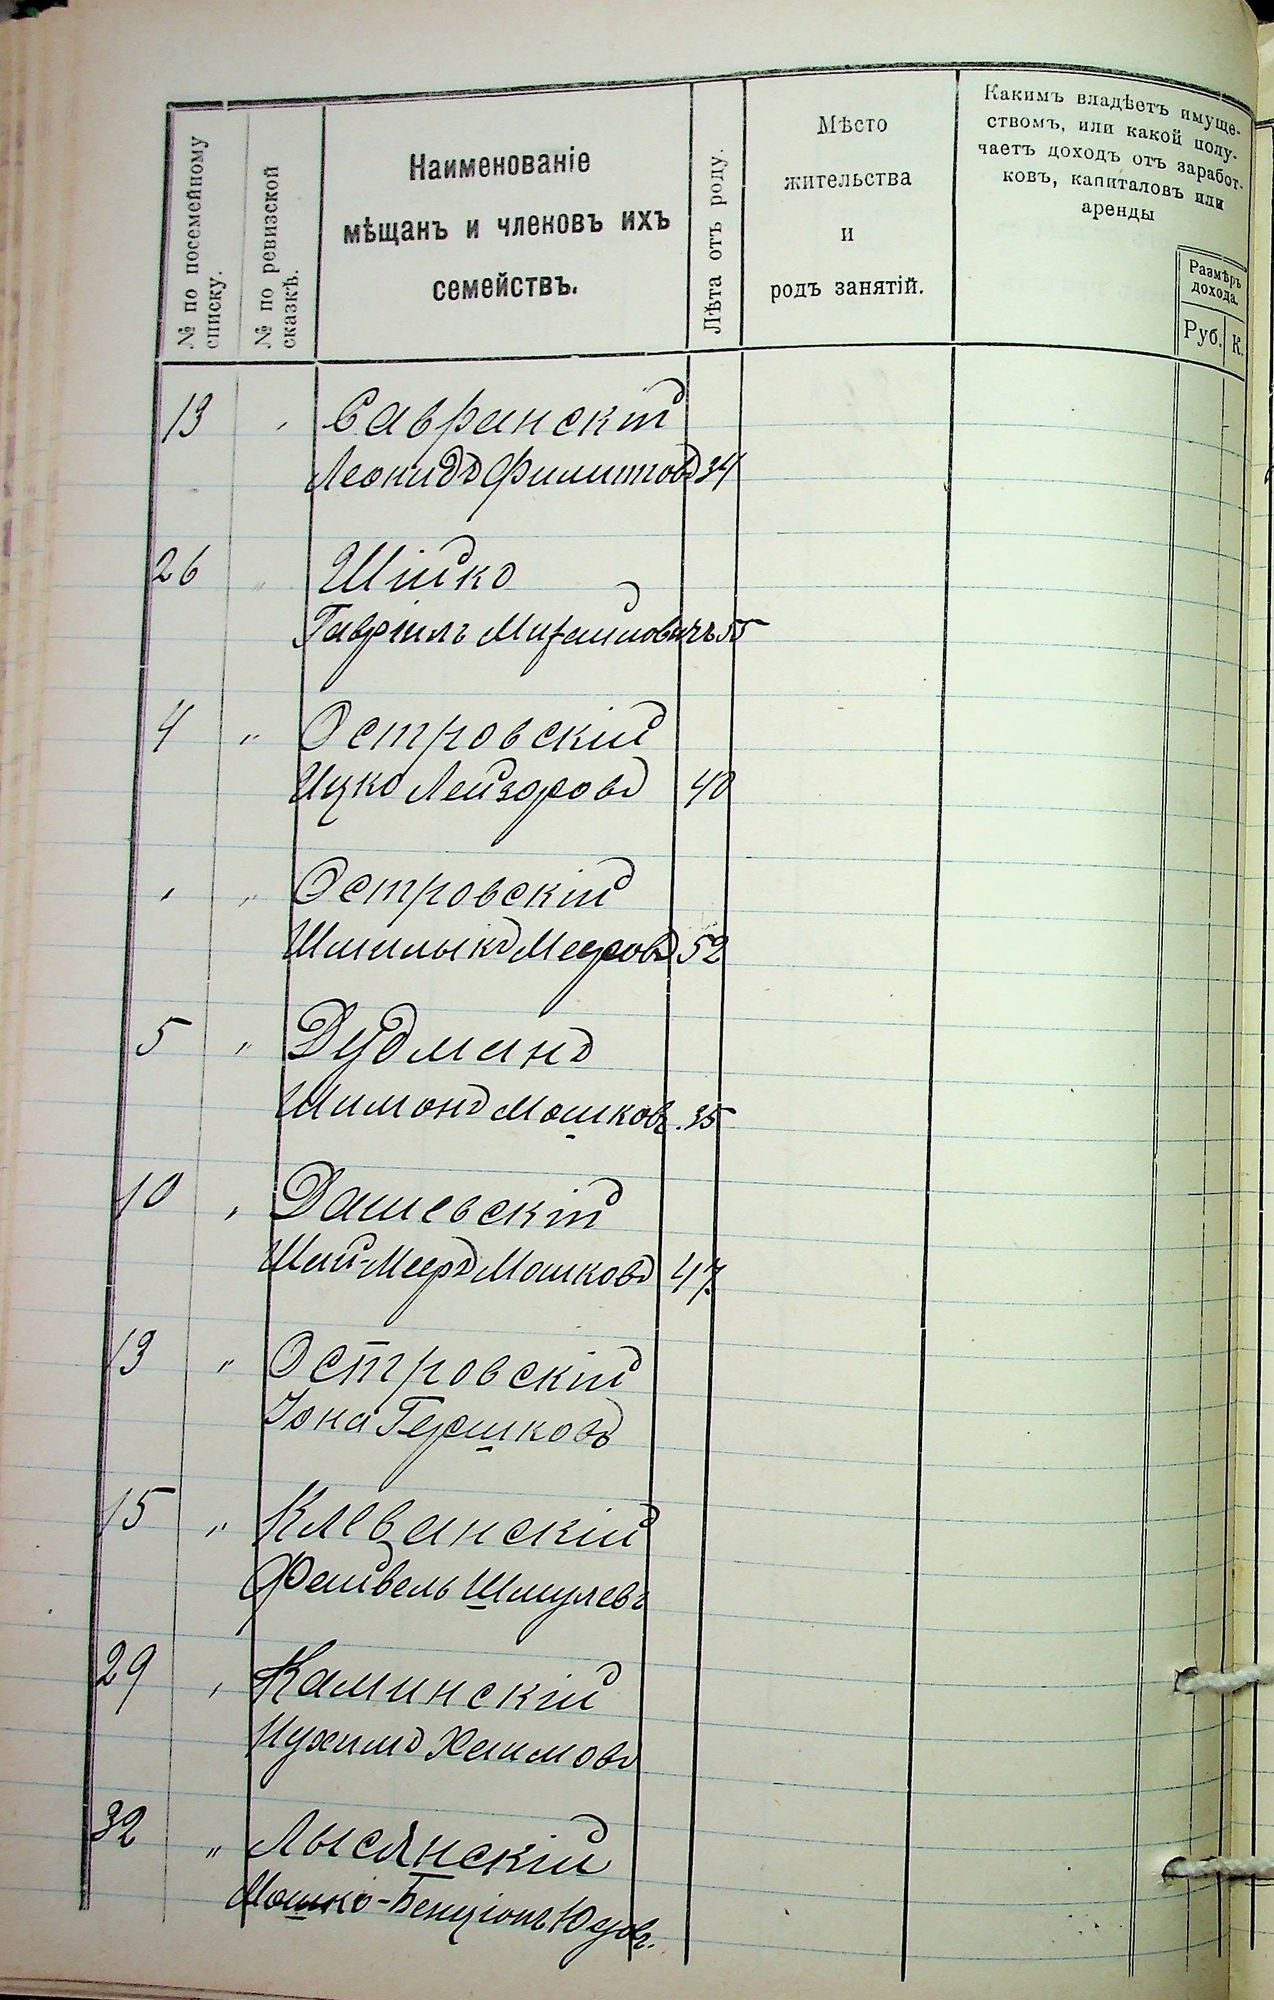 № по посемейному
списку.
№ по ревизской
сказкѣ.
Наименованіе
мѣщанъ и членовъ ихъ
семействъ.
Лѣта отъ роду.
Мѣсто
жительства
и
родъ занятій.
Какимъ владѣетъ имуще-
ствомъ, или какой полу-
чаетъ доходъ отъ заработ-
ковъ, капиталовъ или
аренды
Размѣръ
дохода.
Руб. К.
13 " Савранскій
Леонидъ Филиповъ 34
26 " Шійко
Гавріилъ Михайловичъ 55
4 " Островскій
Ицко Лейзоровъ 40
" " Островскій
Шмилыкъ Мееровъ 52
5 " Дудманъ
Шимонъ Мошковъ. 35
10 " Дашевскій
Шай-Мееръ Мошковъ 47
13 " Островскій
Іона Гершковъ
15 " Клеванскій
Файвель Шмулевъ
29 " Каминскій
Нухимъ Хаимовъ
32 " Лысянскій
Мошко-Бенціонъ Юдовъ.